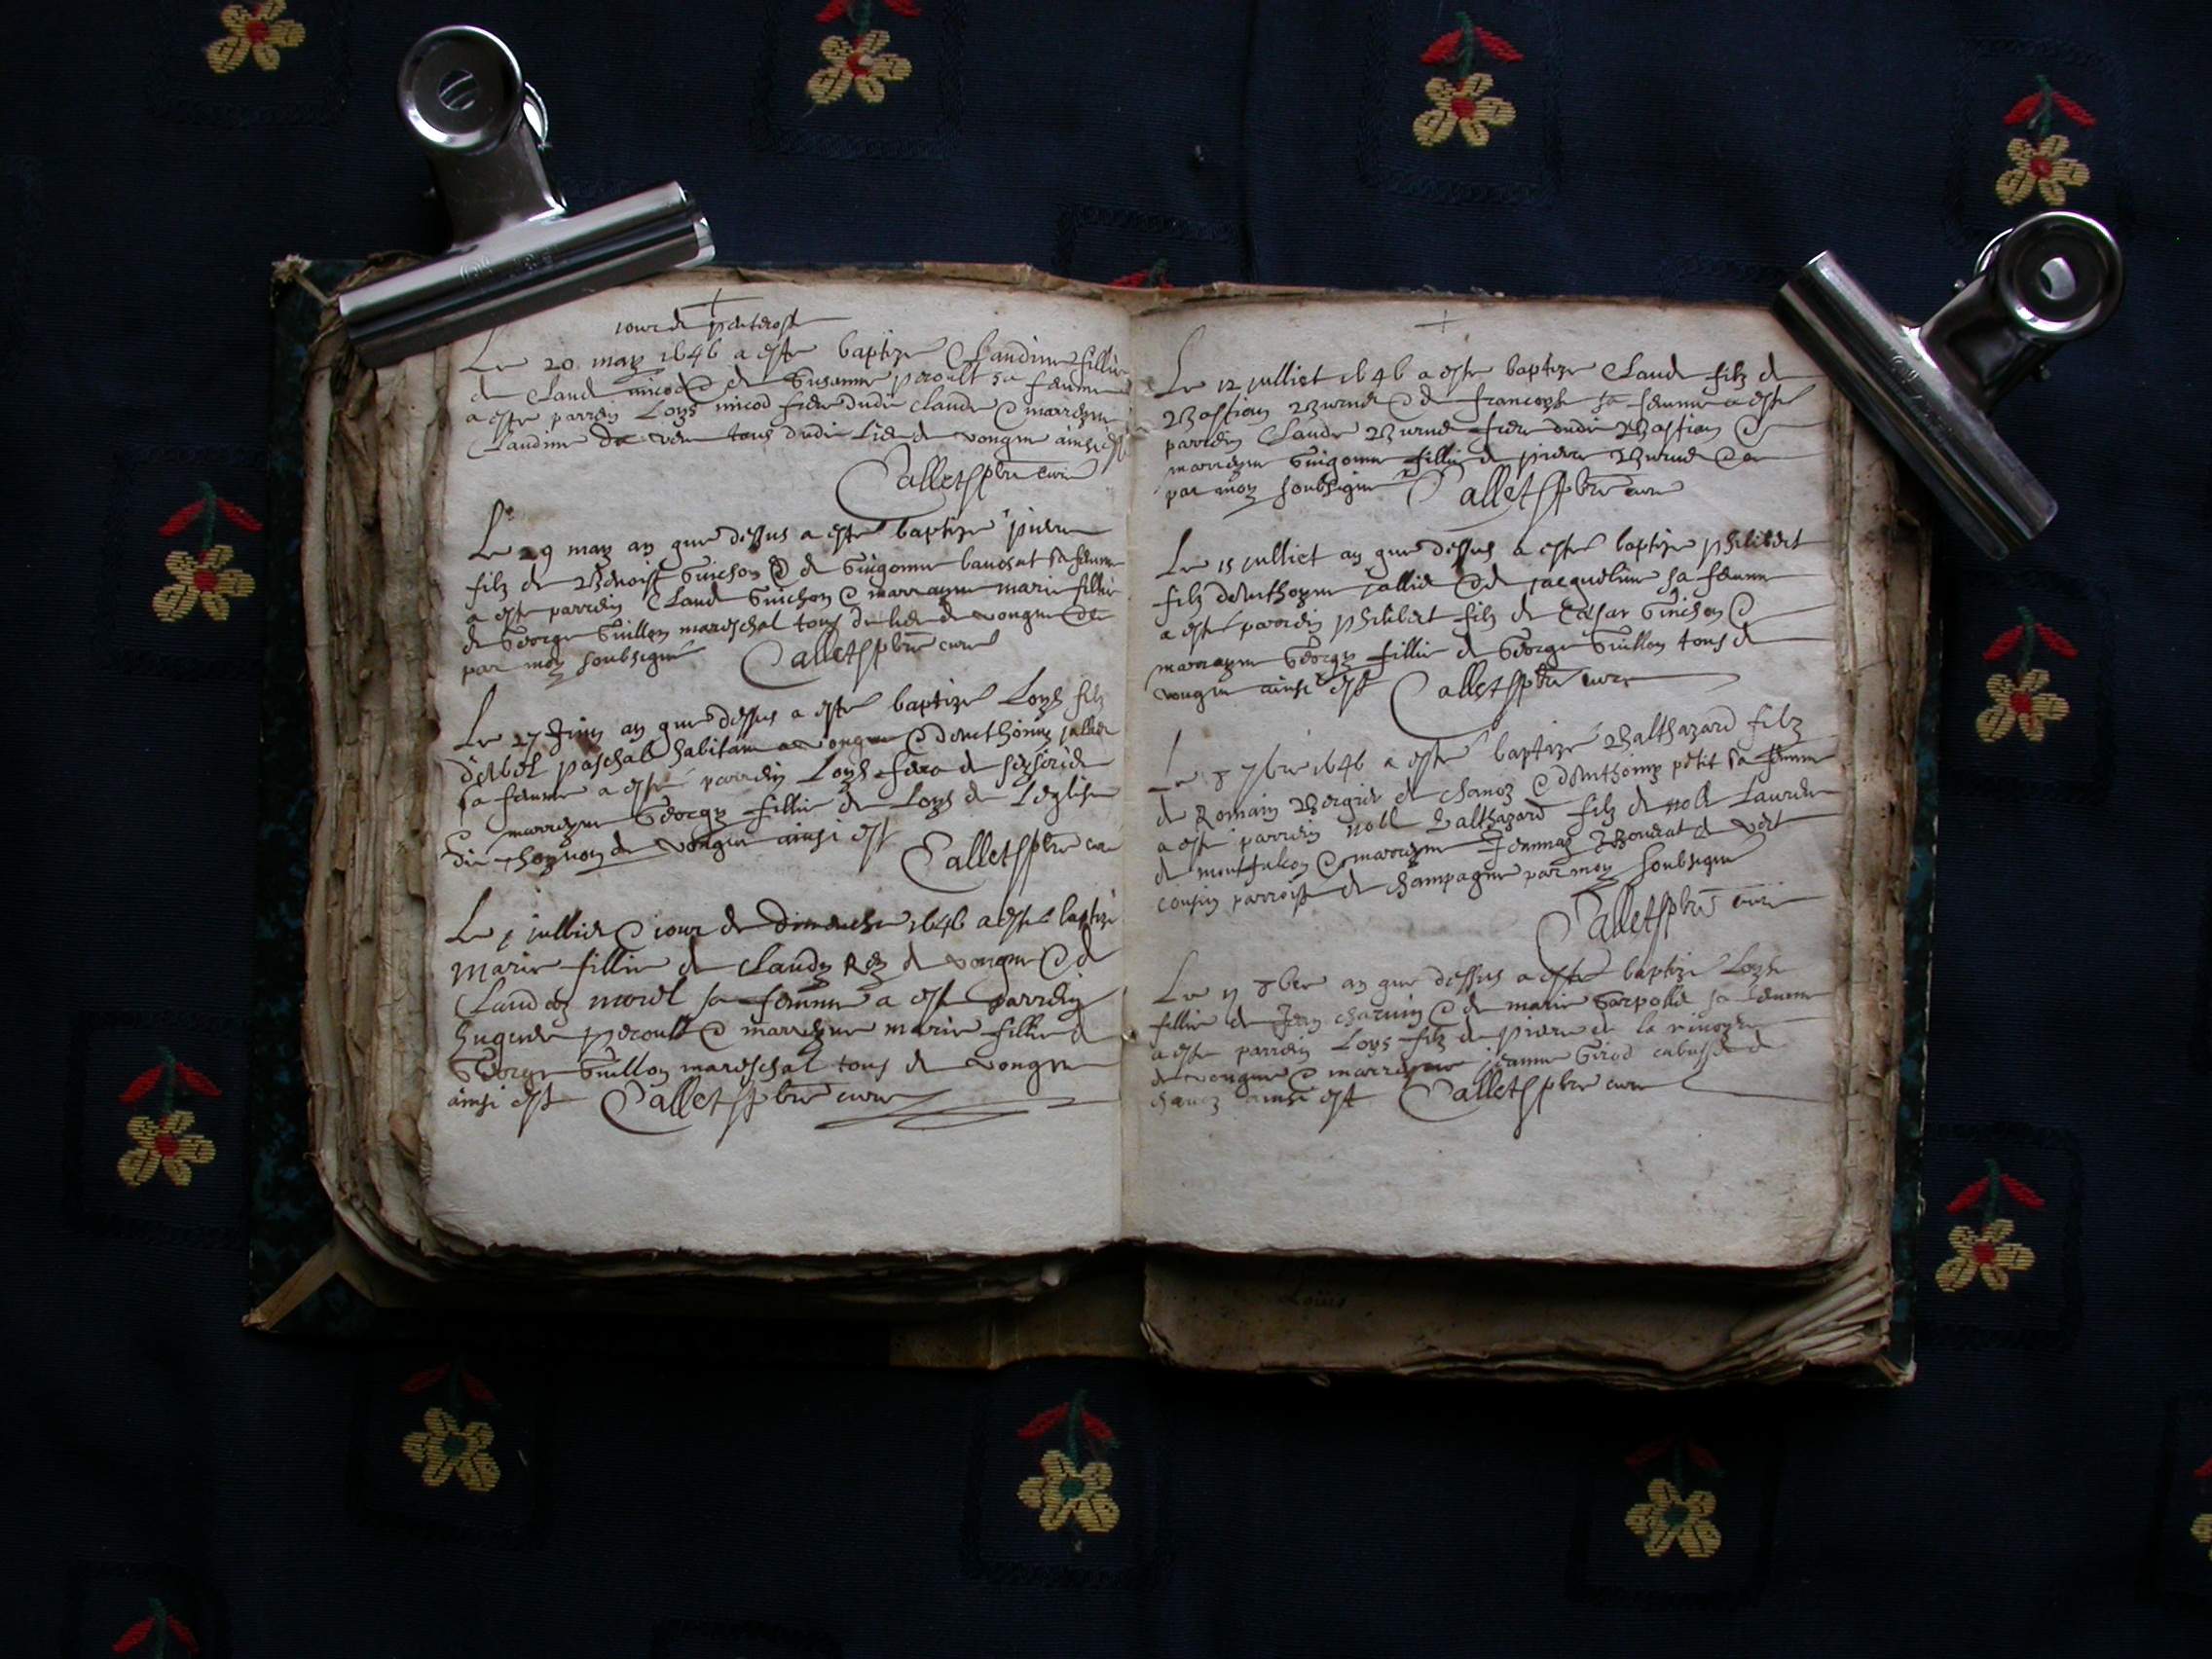 jour de pentecoste
Le 20 may 1646 a este baptize Claudine fillie
de Claude nicod & de Susanne peroult sa femme
a este parrein Loys nicod frere dudit claude & marreyne
Claudine de tous dudit Lieu de vongne ainsi est
Callet pbre curé
Le 29 may an que dessus a este baptize pierre
filz de Benoist Guichon & de Guigonne sa femme
a este parrein Claude Guichon & marrayne marie fillie
de George Guillon mareschal tous du lieu de vongne
par moy soubsigné Callet pbre curé
Le 27 Juin an que dessus a esté baptizé Loys filz
d'Abel paschal habitant a vongne & d'Anthoinaz jallier
sa femme a esté parrein Loys de
& marreyne Georgz fillie de Loys de Leglise
dit de vongne ainsi est Callet pbre curé
Le 1 jullied & jour de dimenche 1646 a este baptizé
Marie fillie de Claudz Rey de vongne & de
Claudaz morel sa femme a este parrein
hugues peroult & marreyne marie fillie de
George Guillon mareschal tous de vongne
ainsi est Callet pbre curé
Le 12 julliet 1646 a este baptize Claude filz de
Bastian Burned & de francoyse sa femme a esté
parrein Claude Burned frere dudit Bastian &
marreyne Guigonne fillie de pierre Burned &
par moy soubsigné Callet pbre curé
Le 15 julliet an que dessus a esté baptize philibert
filz d'Anthoyne jallier & de jacqueline sa femme
a esté parrein philibert filz de Cesar Guichon &
marrayne Georgz fillie de George Guillon tous de
vongne ainsi est Callet pbre curé
Le 8 7bre 1646 a esté baptizé Balthazard filz
de Romain Bergier de chanoz & d'Anthoinaz petit sa femme
a este parrein noble Balthazard filz de noble Laurens
de montfalcon & marreyne Jeanmaz de
parroisse de champagne par moy soubsigné
Callet pbre curé
Le 11 8bre an que dessus a esté baptizé Loyse
fillie de Jean charvin & de marie sa femme
a este parrein Loys filz de pierre de la
de vongne & marreyne jeanne Girod de
ainsi est Callet pbre curé
Louis